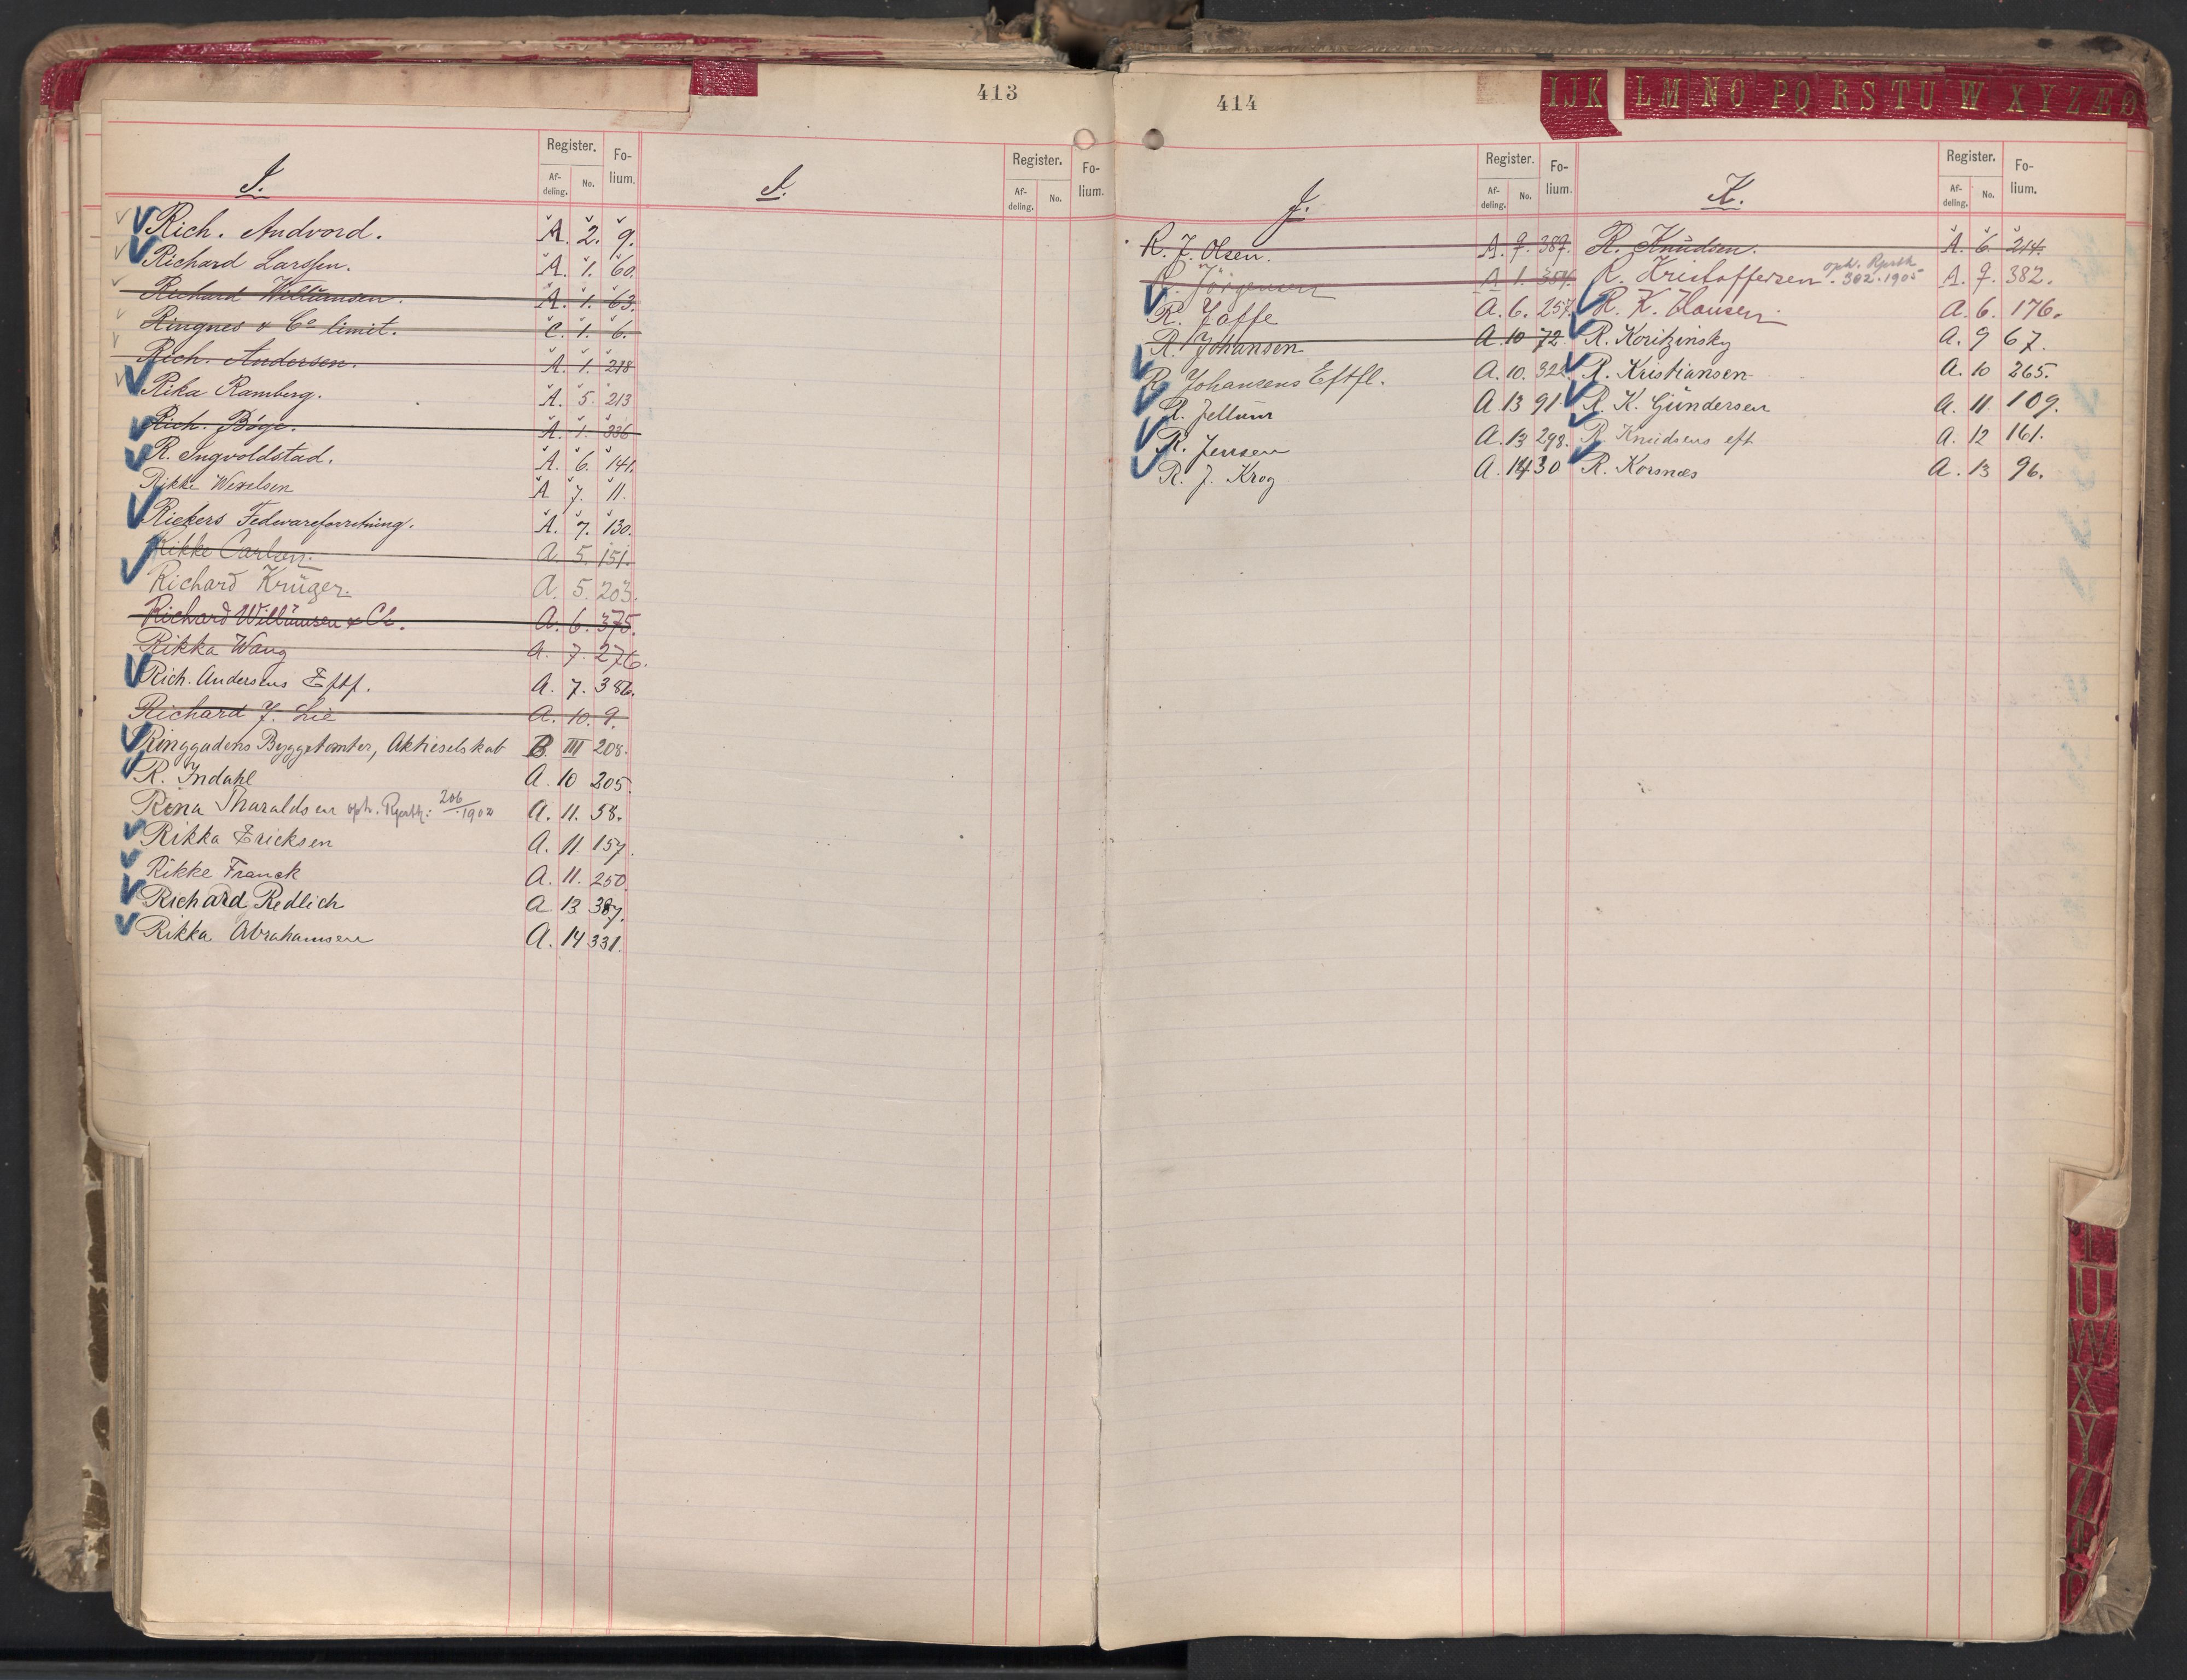 413
I.
Register.
Af-
deling.
No.
Fo-
lium.
Rich. Andvord. A. 2. 9.
Richard Larssen. A. 1. 60.
Richard Willumsen. A. 1. 63.
Ringnes & Co limit. C. 1. 6.
Rich. Andersen. A. 1. 218
Rika Ramberg. A. 5. 213
Rich. Böge. A. 1. 336
R. Ingvoldstad. A. 6. 141.
Rikke Wexelsen A 7. 11.
Riekers Fedevareforretning. A. 7. 130.
Rikke Carlsen. A. 5. 151.
Richard Krüger. A. 5. 203.
Richard Willumsen & Co. A. 6. 375.
Rikka Wang A. 7. 276.
Rich. Andersens Eftf. A. 7. 386.
Richard J. Lie A. 10. 9.
Ringgadens Byggetomter, Aktieselskab B III 208.
R. Indahl A. 10 205.
Rina Tharaldsen oph. 206 A. 11. 58.
Rikka Ericksen A. 11. 157.
Rikke Franck A. 11. 250
Richard Redlich A 13 387.
Rikka Abrahamsen A. 14 331.
I.
Register.
Af-
deling.
No.
Fo-
lium.
414
IJK LM NO PQ RS TU W X Y Z Æ Ø
J.
Register.
Af-
deling.
No.
Fo-
lium.
R. J. Olsen. A. 7. 387.
R. Jörgensen A 1. 354.
R. Jaffe A. 6. 257.
R. Johansen A 10 72
R. Johansens Eftfl. A. 10. 322.
R. Jellum A 13 91
R. Jensen A. 13 298.
R. J. Krog A. 14 30
K.
Register.
Af-
deling.
No.
Fo-
lium.
R. Knudsen. A. 6. 214.
R. Kristoffersen. oph. 302.1905 A. 7. 382.
R. K. Hansen A. 6. 176.
R. Koritzinsky A. 9 67.
R. Kristiansen A. 10 265.
R. K. Gundersen A. 11 109.
R. Knudsens eft A. 12 161.
R. Korsnæs A. 13 96.
U
W
X
Y
Z